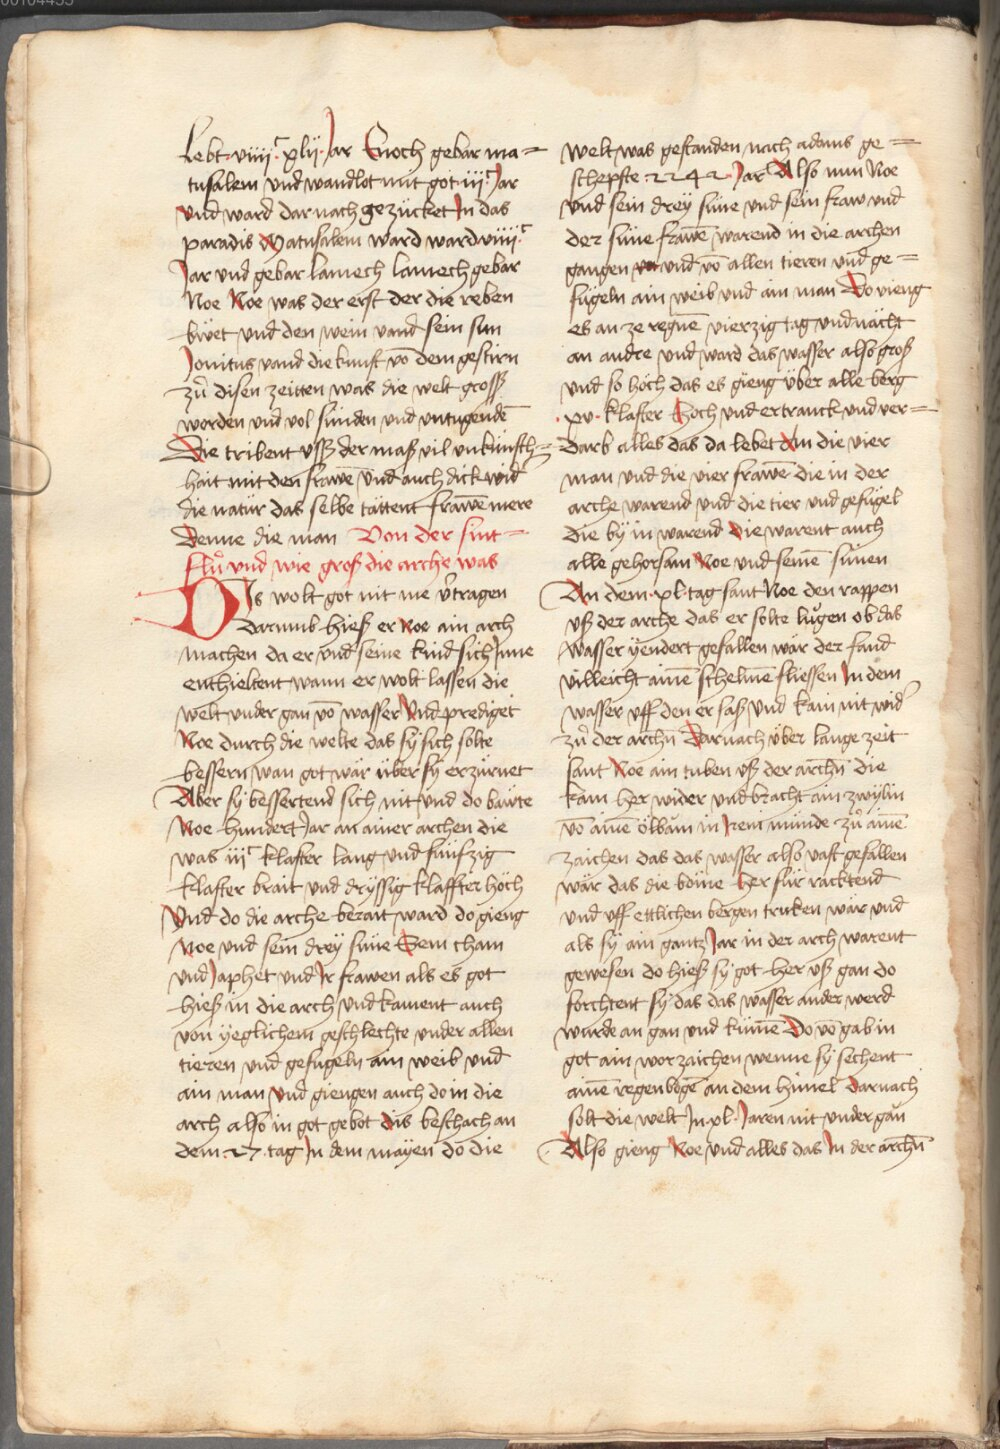 Lebt viiiiᶜ xlij Jar Enoch gebar ma=
tusalem vnd wandlot mit got iijᶜ Jar
vnd ward dar nach gezücket In das
paradis Matusalem ward ward viiijᶜ
Jar vnd gebar lamech lamech gebar
Noe Noe was der erst der die reben
bwet vnd den wein vand sein sun
Jonitus vand die kunst vō dem gestirn
zů disen zeitten was die welt grosß
worden vnd vol sünden vnd vntugendē
Die tribent vsß der maß vil vnkünsch=
hait mit den frawē vnd auch dick wid
die natür das selbe tättent frawē mere
denne die man Von der sint=
fluͦ vnd wie groß die arche was
Dis wolt got nit me v̄tragen
darumb hieß er Noe ain arch
machen da er vnd seine kind sich Inne
enthieltent wann er wolt lassen die
welt vnder gan vō wasser Vnd prediget
Noe durch die welte das sÿ sich solte
bessern wan got wär über sÿ erzürnet
Aber sÿ bessertend sich nit vnd do bawte
Noe hundert Jar an ainer archen die
was iijᶜ klafter lang vnd fünfzig
klafter brait vnd drÿssig klaffter höch
Vnd do die arche berait ward do gieng
Noe vnd sein dreÿ süne Sem cham
vnd Japhet vnd Ir frawen als es got
hieß in die arch vnd kament auch
von ÿeglichem geschlechte vnder allen
tieren vnd gefügeln ain weib vnd
ain man vnd giengen auch do in die
arch also in got gebot dis beschach an
dem 27 tag In dem mayen do die
welt was gestanden nach adams ge=
schepfte 2242 Jar Also nun Noe
vnd sein dreÿ süne vnd sein fraw vnd
der süne frawē warend in die archen
gangen vnd vō allen tieren vnd ge=
fügeln ain weib vnd ain man Do vieng
es an ze regnē vierzig tag vnd nächt
an andre vnd ward das wasser also groß
vnd so höch das es gieng über alle berg
xv klafter Hoch vnd ertranck vnd ver=
darb alles das da lebet An die vier
man vnd die vier frawē die in der
arche warend vnd die tier vnd gefügel
die bÿ in warend die warent auch
alle gehorsam Noe vnd seinē sünen
An dem xl tag sant Noe den rappen
vß der arche das er solte lůgen ob das
wasser ÿendert gefallen wär der fand
villeicht ainē schelmē fliessen In dem
wasser vff den er saß vnd kam nit wid
zů der archn̄ Darnach über lange zeit
sant Noe ain tuben vß der archn̄ die
kam her wider vnd bracht ain zwÿlin
vō ainē ölbäm in Irem munde zů ainē
zaichen das das wasser also vast gefallen
wär das die böme her für racktend
vnd vff ettlichen bergen truken wär vnd
als sÿ ain gantz Jar in der arch warent
gewesen do hieß sÿ got her vß gan do
forchtent sÿ das das wasser ander werd
wurde an gan vnd kumē Do vō gab in
got ain worzaichen wenne sÿ sechent
ainē regenbogē an dem himel Darnach
solt die welt In xl Jaren nit vnder gan
Also gieng Noe vnd alles das In der archn̄